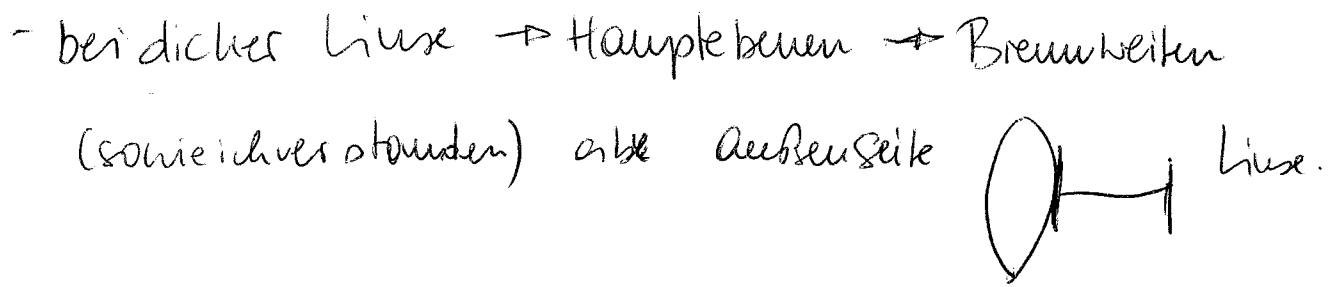 - bei dicker Linse → Hauptebenen → Brennweiten
(so wie ich verstanden) Außenseite Linse.